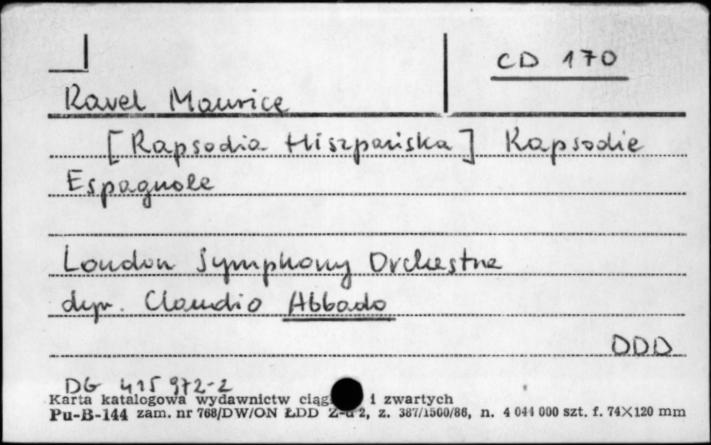 CD 170
Ravel Maurice
[Rapsodia Hiszpańska] Rapsodie
Espagnole
London Symphony Orchestra
dyr. Claudio Abbado
DDD
DG 415 972-2
Karta katalogowa wydawnictw ciąg i zwartych
Pu-B-144 zam. nr 768/DW/ON ŁDD Z-d 2, z. 387/1500/86, n. 4 044 000 szt. f. 74×120 mm